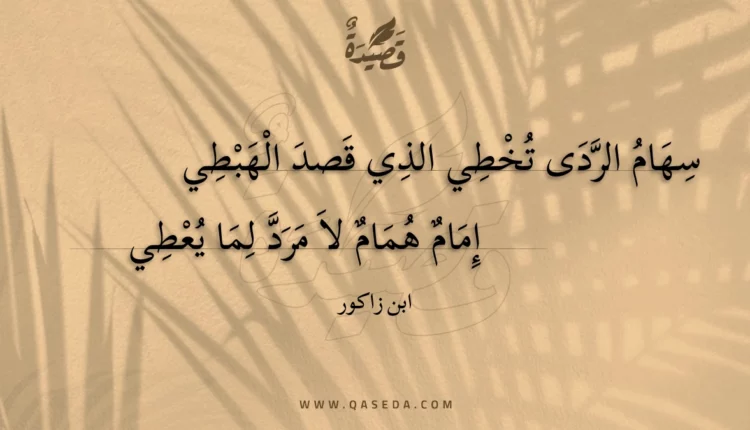 قَصِيْدَةٌ
سِهَامُ الرَّدَى تُخْطِي الذِي قَصدَ الْهَبْطِي
إِمَامٌ هُمَامٌ لاَ مَرَدَّ لِمَا يُعْطِي
ابن زاكور
WWW.QASEDA.COM